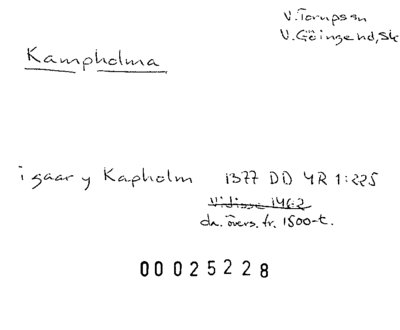 V. Torupssn
V. Göingehd, Sk
Kampholma
i gaar y Kapholm 1377 DD 4R 1:225
Vidisse 1462
da. övers. fr. 1500-t.
00025228